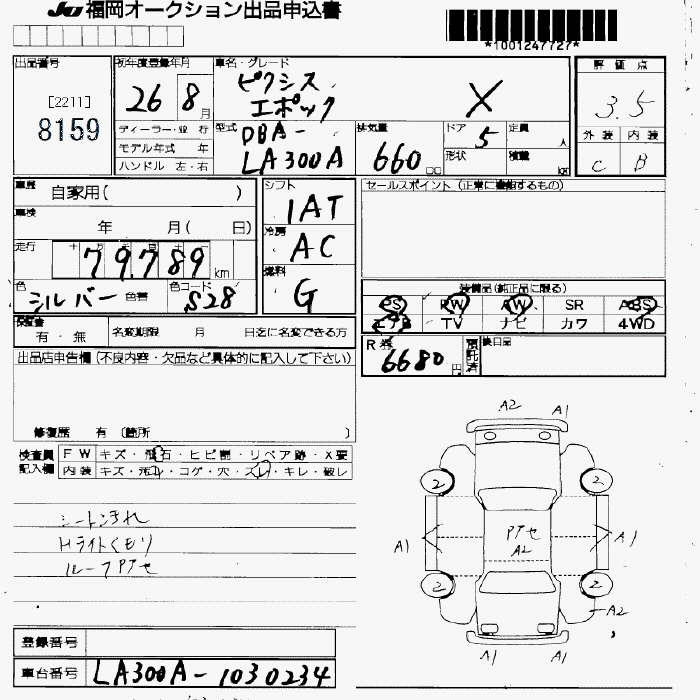 JU 福岡オークション出品申込書
*1001247727*
出品番号
[2211]
8159
初年度登録年月
26 8月
ディーラー・並行
モデル年式 年
ハンドル 左・右
車名・グレード
ピクシス
エポック X
型式
DBA-
LA300A
排気量
660 cc
ドア 5
形状
定員 人
積載 kg
評価点
3.5
外装 内装
C B
車歴 自家用( )
車検 年 月( 日)
走行 十 万 千 百 十 一
79,789 km
色 シルバー 色替
色コード S28
シフト
IAT
冷房
AC
燃料
G
セールスポイント (正常に機能するもの)
装備品(純正品に限る)
PS PW AW SR ABS
エアB TV ナビ カワ 4WD
保証書
有・無
名変期限 月 日迄に名変できる方
R券
6680 円
預託済
後日品
出品店申告欄 (不良内容・欠品など具体的に記入して下さい)
修復歴 有 〔箇所 〕
検査員記入欄
FW キズ・飛石・ヒビ割・リペア跡・X要
内装 キズ・汚れ・コゲ・穴・スレ・キレ・破レ
シートンきれ
Hライトくもり
ルーフアアセ
A2 A1
2 2
アアセ
A2
A1 A1
2 2
A2
A1 A1
登録番号
車台番号 LA300A-1030234